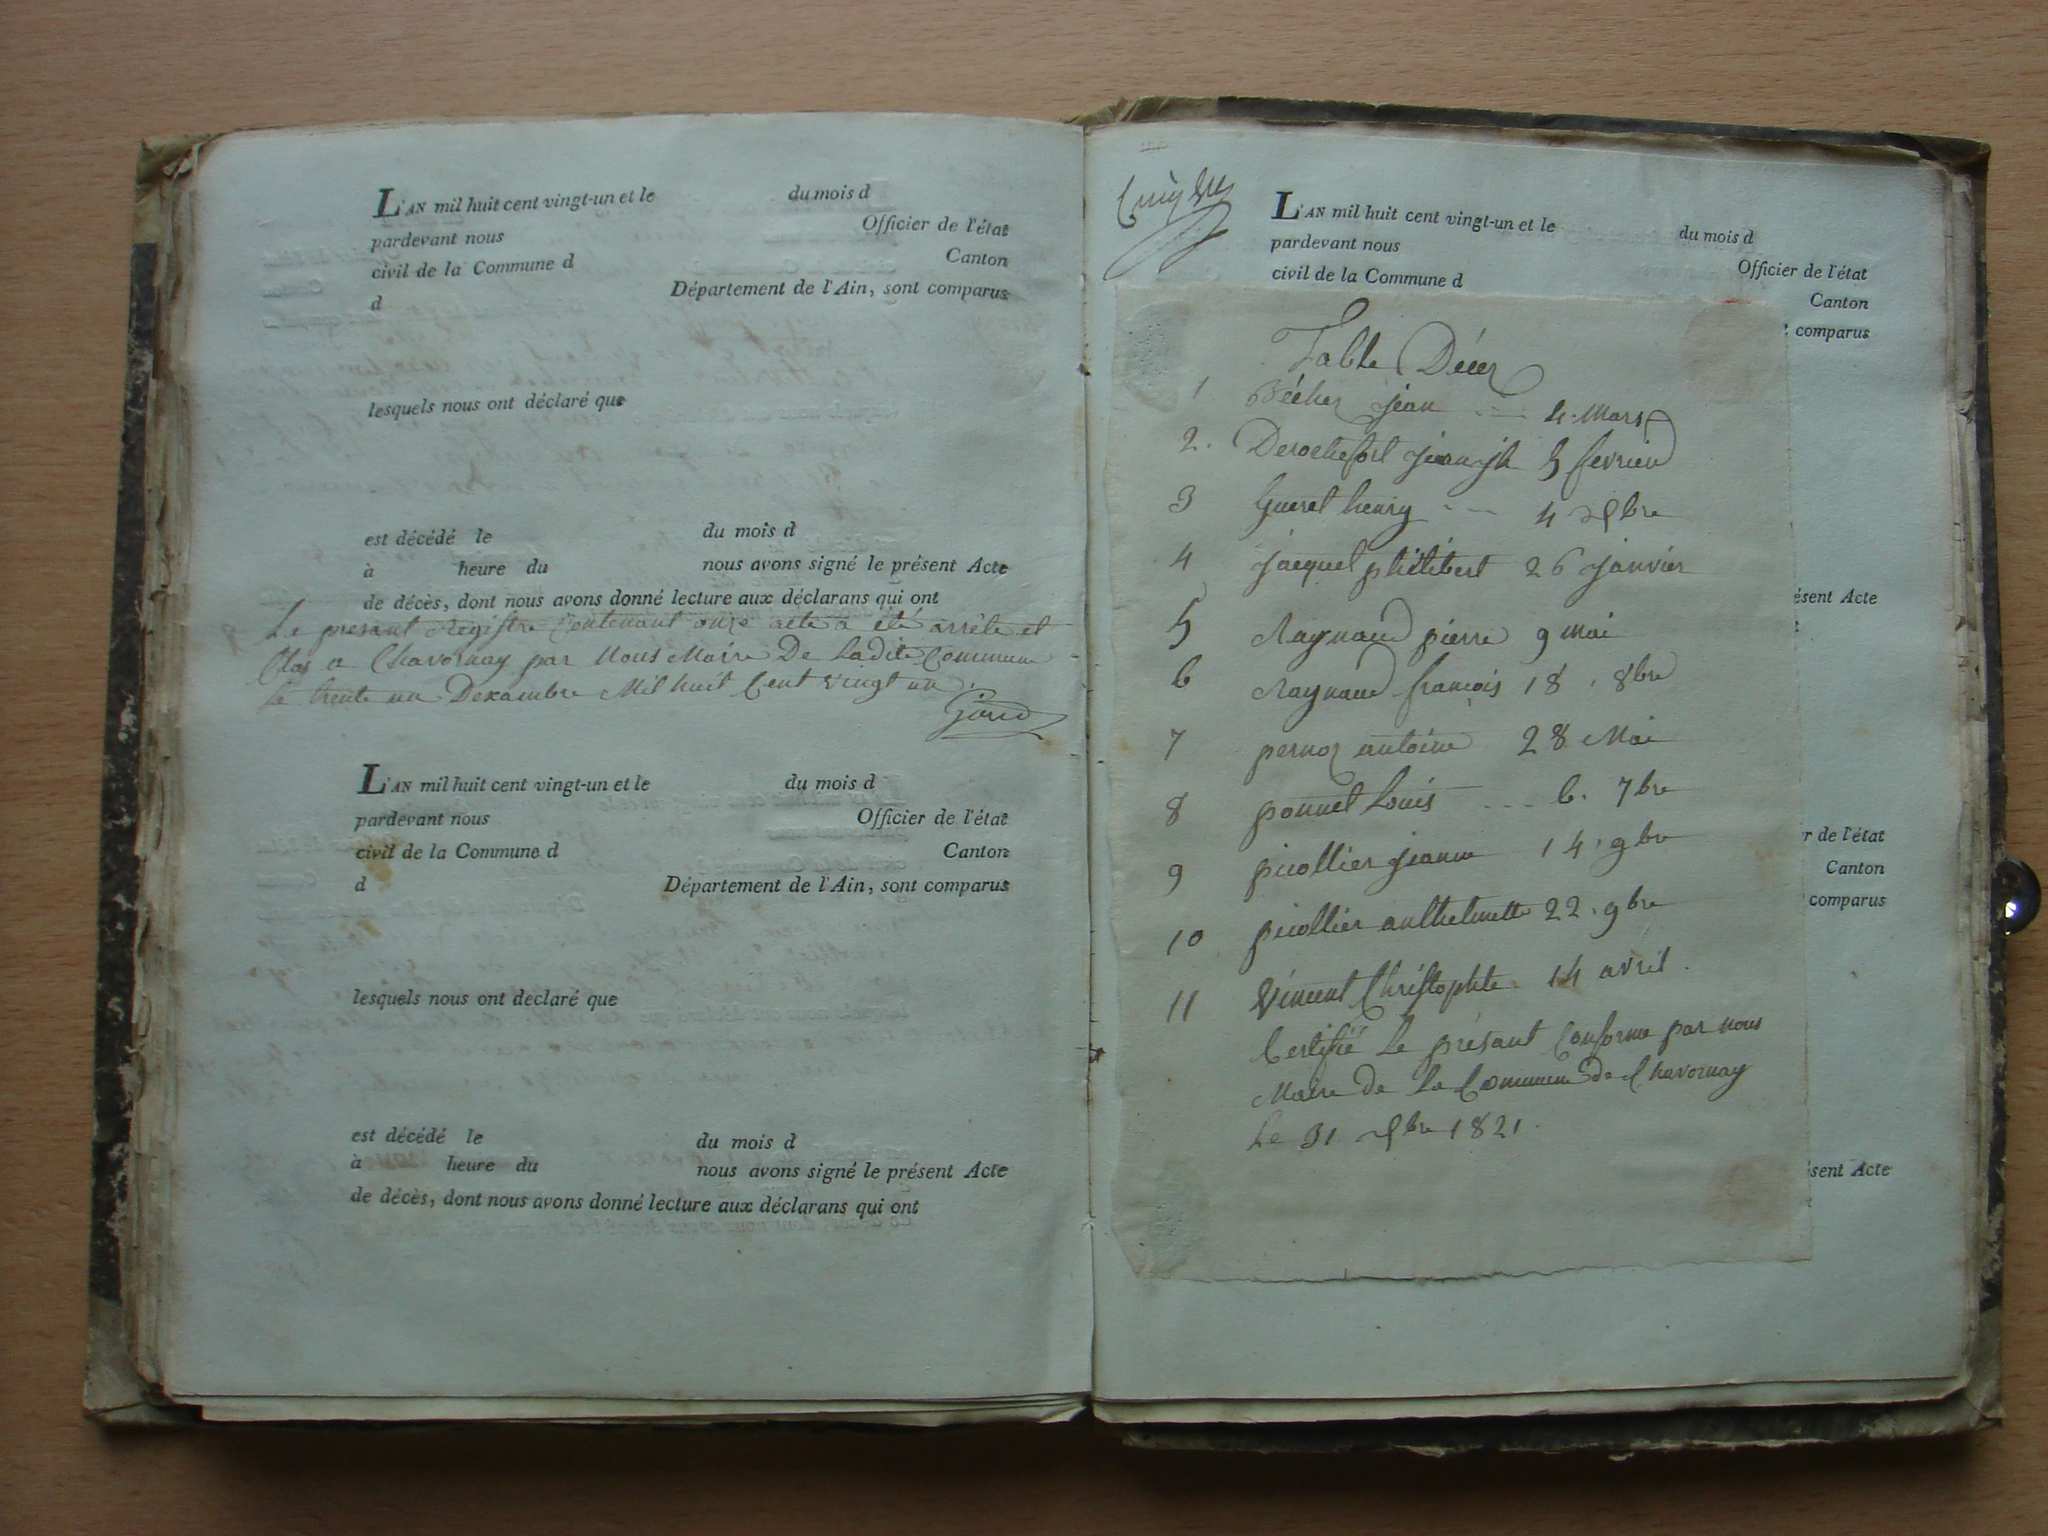 L'AN mil huit cent vingt-un et le du mois d
pardevant nous Officier de l'état
civil de la Commune d Canton
d Département de l'Ain, sont comparus
lesquels nous ont déclaré que
est décédé le du mois d
à heure du nous avons signé le présent Acte
de décès, dont nous avons donné lecture aux déclarans qui ont
Le presant Registre Contenant onze acte a été arrêté et
Clos a Chavornay par Nous Maire De Ladite Commune
Le trente un Dexambre Mil huit Cent vingt un
L'AN mil huit cent vingt-un et le du mois d
pardevant nous Officier de l'état
civil de la Commune d Canton
d Département de l'Ain, sont comparus
lesquels nous ont declaré que
est décédé le du mois d
à heure du nous avons signé le présent Acte
de décès, dont nous avons donné lecture aux déclarans qui ont
L'AN mil huit cent vingt-un et le du mois d
pardevant nous Officier de l'état
civil de la Commune d Canton
comparus
Table Décez
1 jean 4 Mars
2. Derochefort jean jh 5 fevrier
3 Gueret henry 4 Xbre
4 jacquet philibert 26 janvier
5 Raynaud pierre 9 mai
6 Raynaud francois 18. 8bre
7 pernoz antoine 28 Mai
8 ponnet Louis 6. 7bre
9 picollier jeanne 14. 9bre
10 picollier anthelmette 22. 9bre
11 Vincent Christophte 14 avril.
Certifié Le présant Conforme par nous
Maire de La Commune de Chavornay
Le 31 Xbre 1821.
ésent Acte
r de l'état
Canton
comparus
ésent Acte